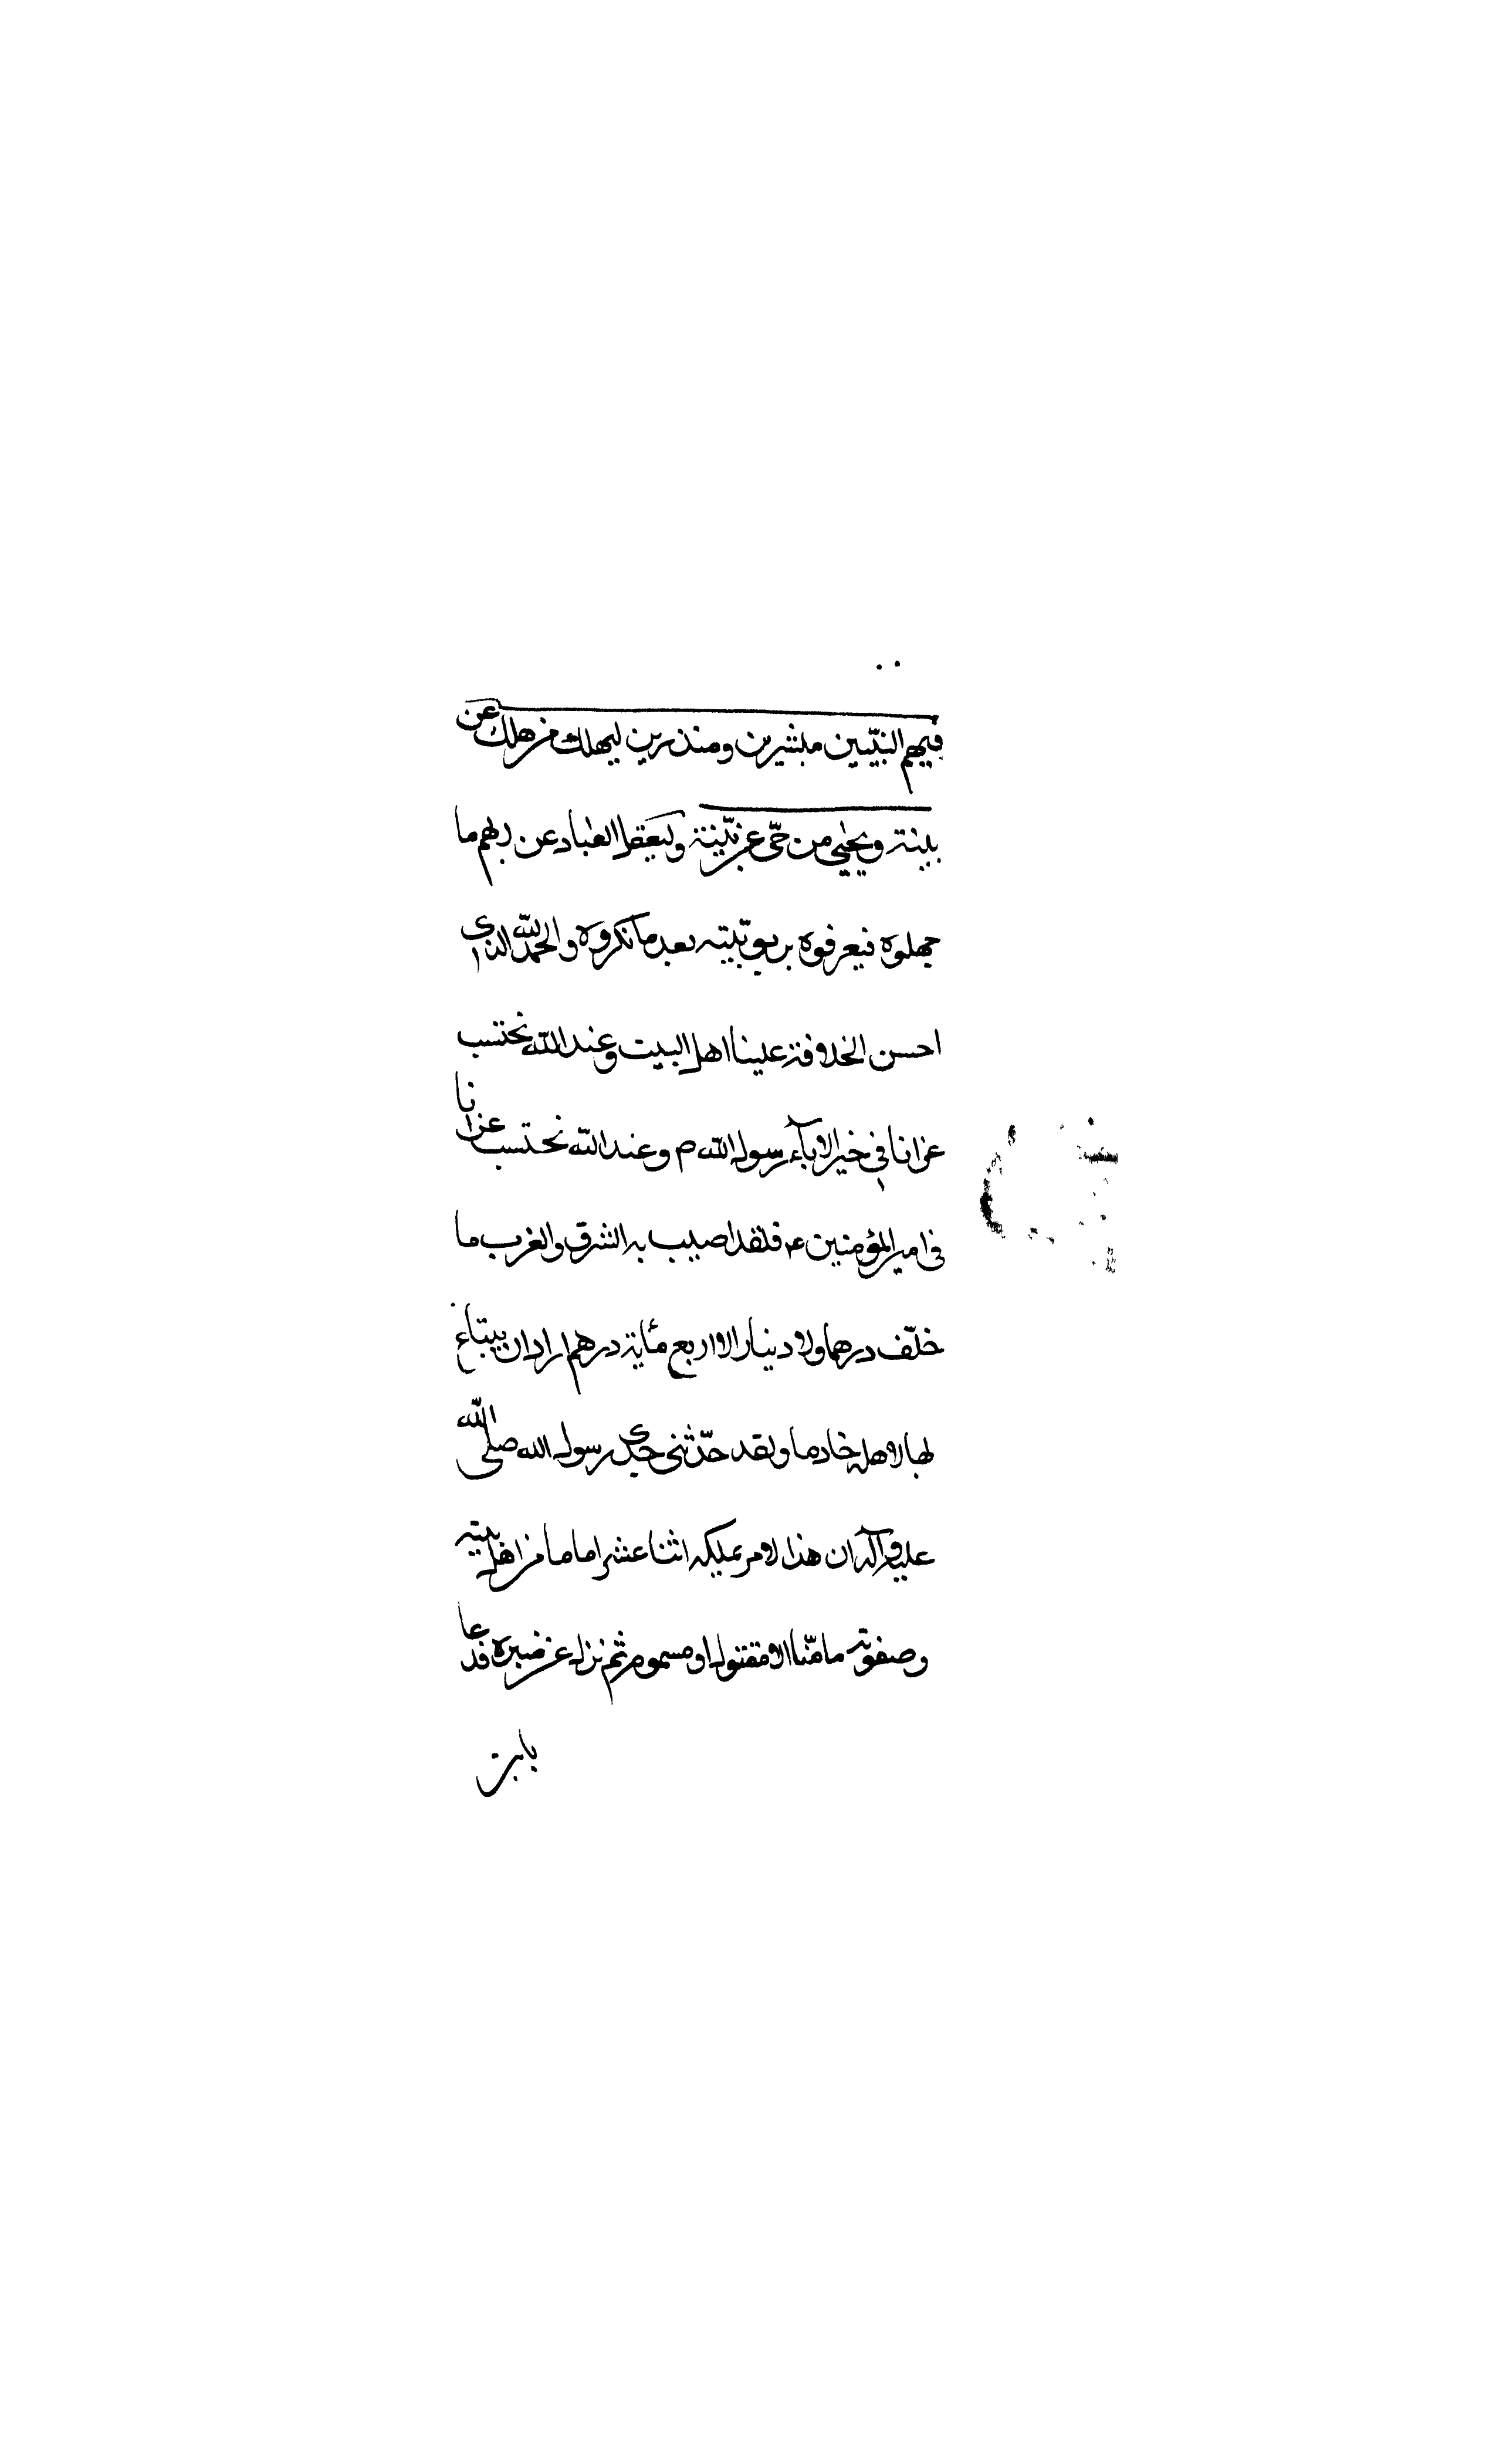 فيهم النبيّين مبشرين ومنذرين ليهلك من هلك عن
بينة ويحيى من حىّ عن بيّنة وليعقل العباد عن ربهم ما
جهلوه فيعرفوه بربوبيّته بعد ما نكروه والحمد لله الذى
احسن الخلافة علينا اهل البيت وعند الله نحتسب
عزانا فى خير الاباۤء رسول الله ص وعند الله نحتسب عزانا
فى امير المؤمنين ع فلقد اصيب به الشرق والغرب ما
خلّف درهما ولا دينار الا اربع مئاية درهم اراد ان يبتاع
بها لاهله خادما ولقد حدّثنى جدى رسول الله صلى الله
عليه وآله ان هذا الامر يملكه اثنا عشر اماما من اهل بيته
وصفوته ما منّا الا مقتول او مسموم ثم نزل عن منبره فدعا
بابن